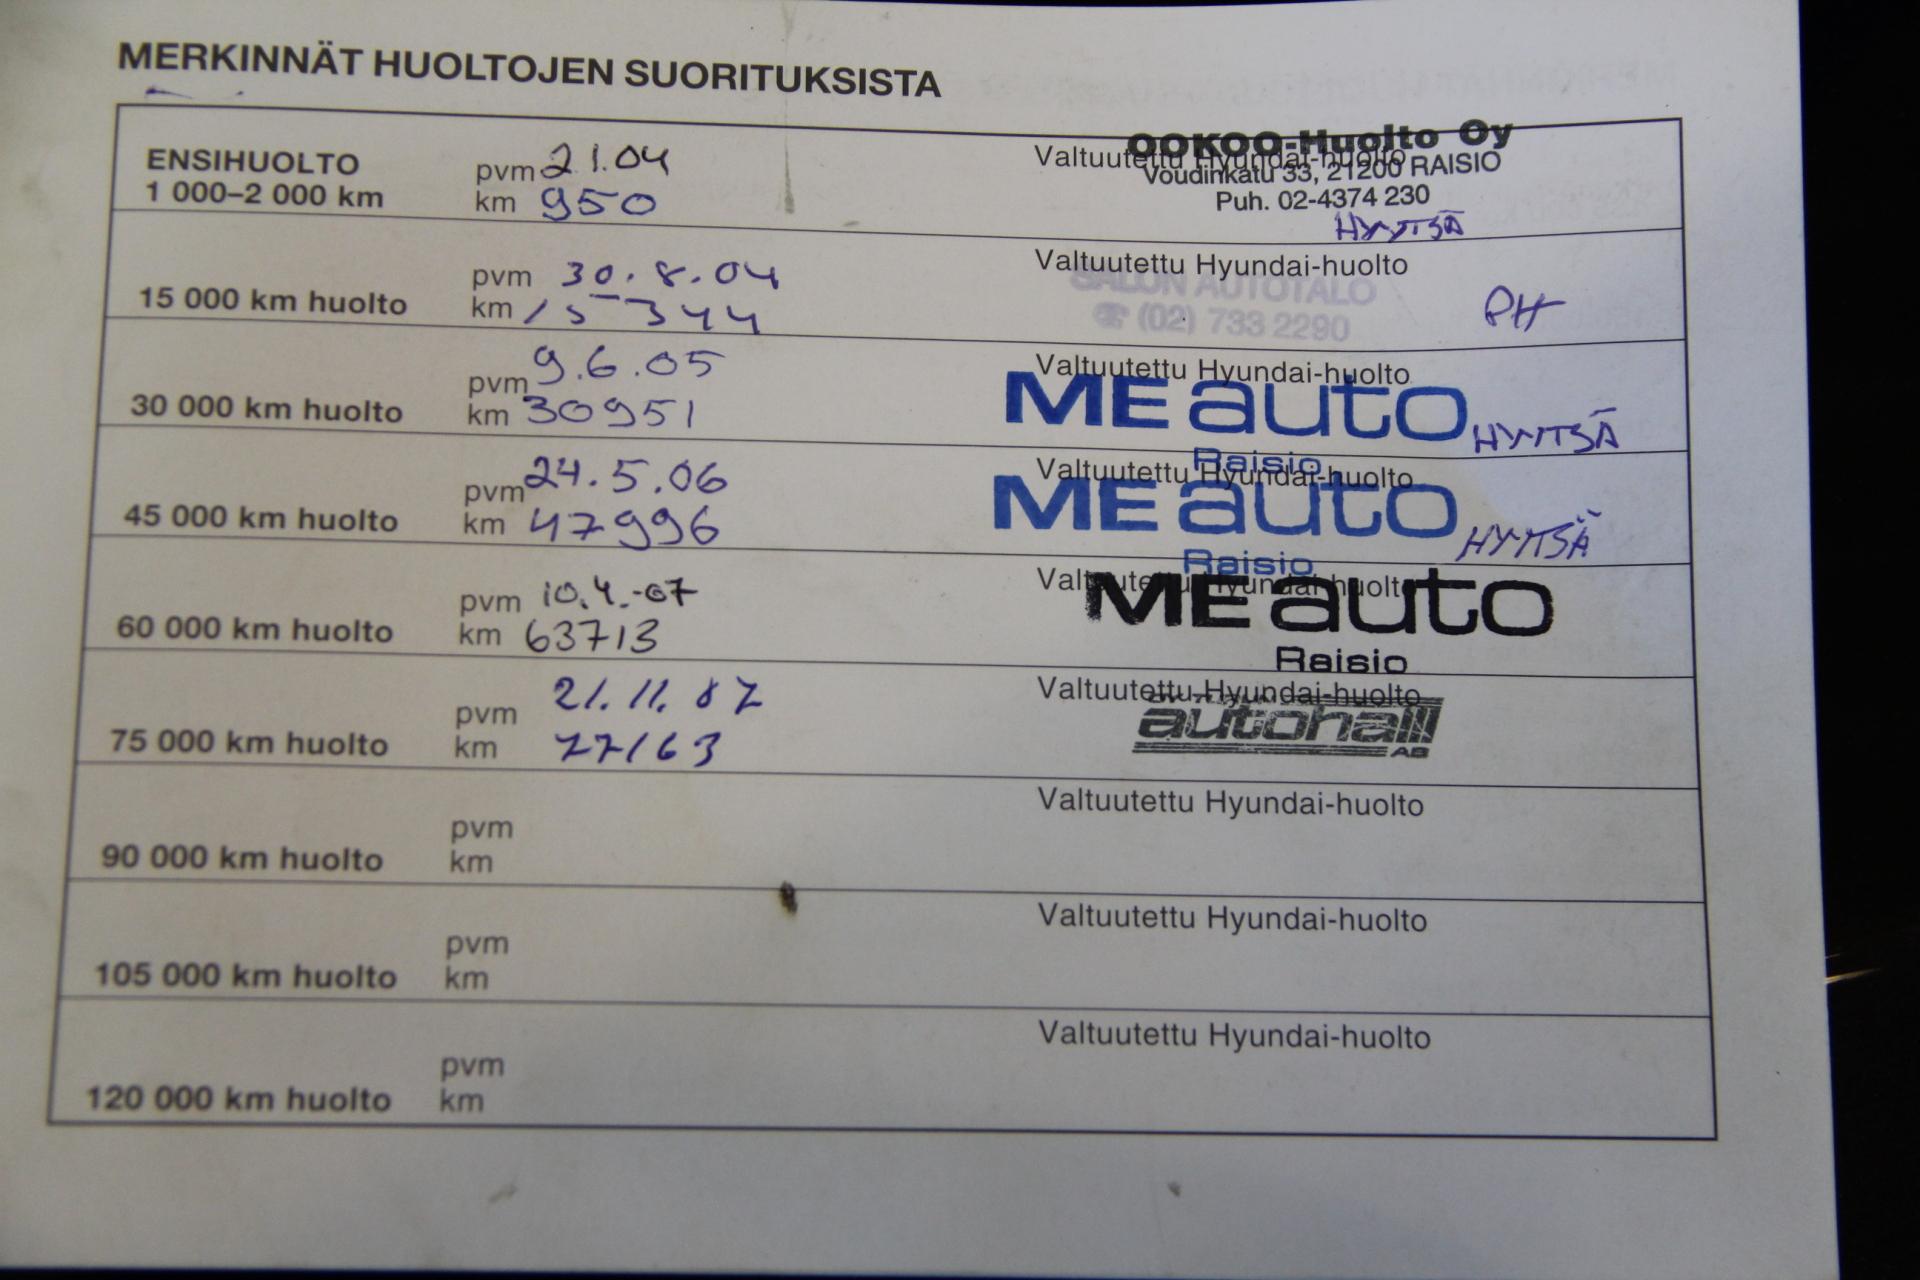 MERKINNÄT HUOLTOJEN SUORITUKSISTA
ENSIHUOLTO
1 000–2 000 km
pvm 21.04
km 950
Valtuutettu Hyundai-huolto
OOKOO-Huolto Oy
Voudinkatu 33, 21200 RAISIO
Puh. 02-4374 230
HYYTSÄ
15 000 km huolto
pvm 30.8.04
km 15344
Valtuutettu Hyundai-huolto
SALON AUTOTALO
☎ (02) 733 2290
PH
30 000 km huolto
pvm 9.6.05
km 30951
Valtuutettu Hyundai-huolto
ME auto
Raisio
HYYTSÄ
45 000 km huolto
pvm 24.5.06
km 47996
Valtuutettu Hyundai-huolto
ME auto
Raisio
HYYTSÄ
60 000 km huolto
pvm 10.4.-07
km 63713
Valtuutettu Hyundai-huolto
ME auto
Raisio
75 000 km huolto
pvm 21.11.07
km 77163
Valtuutettu Hyundai-huolto
autohall
AB
90 000 km huolto
pvm
km
Valtuutettu Hyundai-huolto
105 000 km huolto
pvm
km
Valtuutettu Hyundai-huolto
120 000 km huolto
pvm
km
Valtuutettu Hyundai-huolto